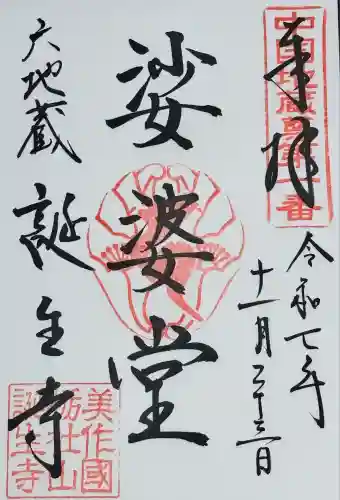 奉拝
中国地蔵尊第一番
令和七年
十一月二十三日
娑婆堂
六地蔵
誕生寺
美作國
栃社山
誕生寺